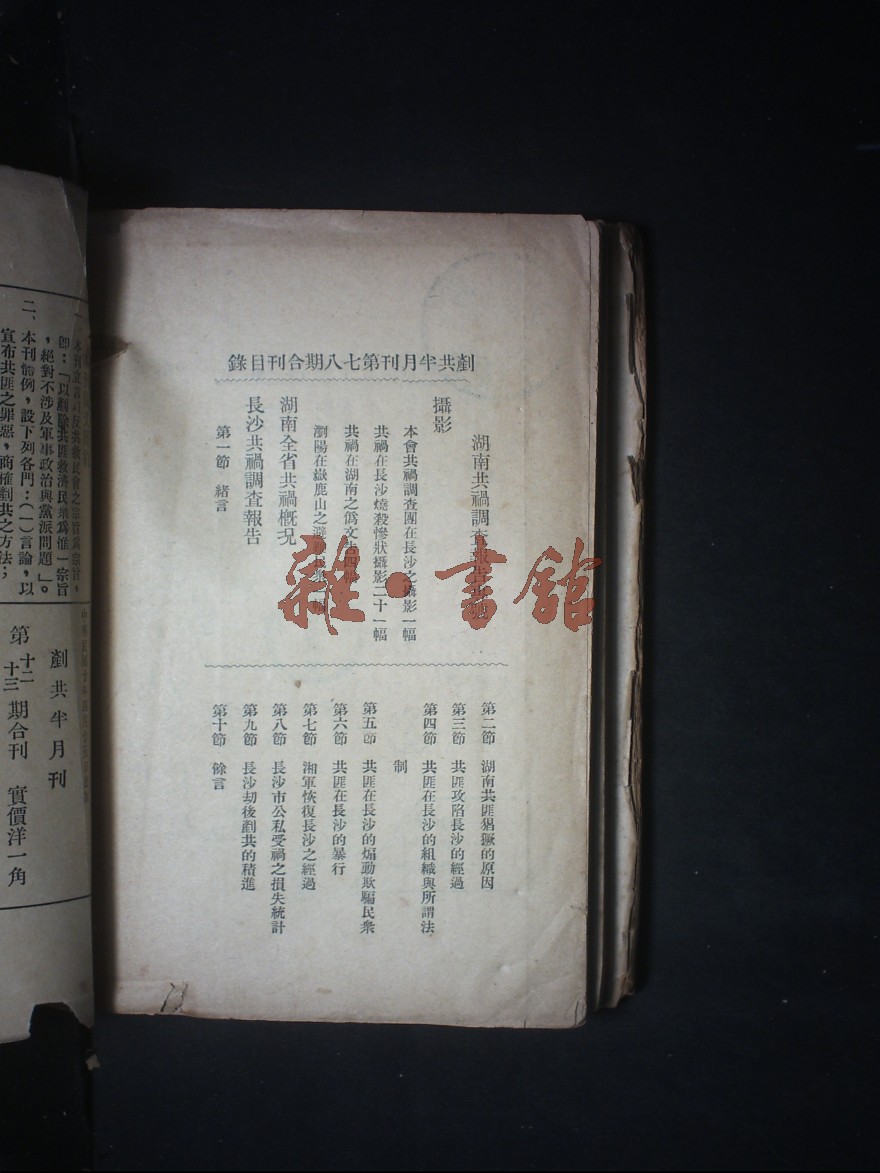 剷共半月刊第七八期合刊目錄
湖南共禍調查報告
攝影
本會共禍調查團在長沙之攝影一幅
共禍在長沙燒殺慘狀攝影二十一幅
共禍在湖南之僞文告四
瀏陽在嶽鹿山之避難民衆
湖南全省共禍概况
長沙共禍調查報告
第一節 緒言
第二節 湖南共匪猖獗的原因
第三節 共匪攻陷長沙的經過
第四節 共匪在長沙的組織與所謂法
制
第五節 共匪在長沙的煽動欺騙民衆
第六節 共匪在長沙的暴行
第七節 湘軍恢復長沙之經過
第八節 長沙市公私受禍之損失統計
第九節 長沙劫後剷共的積進
第十節 餘言
雜·書館
本刊立言以反共救民會之宗旨爲宗旨，
卽：「以剷除共匪救濟民衆爲惟一宗旨
，絕對不涉及軍事政治與黨派問題」。
二、本刊體例，設下列各門：（一）言論，以
宣布共匪之罪惡，商榷剷共之方法；
剷共半月刊
第十二十三期合刊 實價洋一角